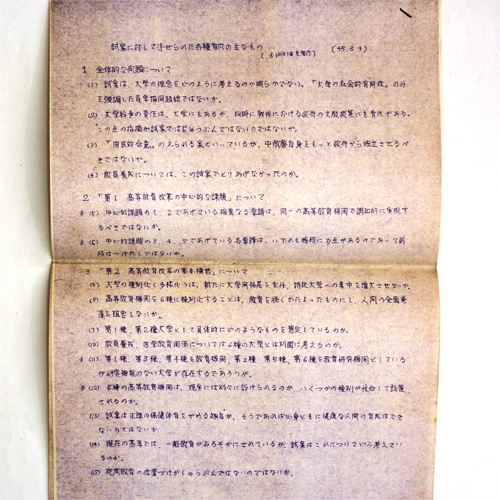 試案に対して寄せられた各種意見の主なもの (45.3.9)
1 全体的な問題について
(1) 試案は、大学の理念をどのように考えるのか明らかでない。「大学の社会的有用性」のみ
を強調した産学協同路線ではないか。
(2) 大学紛争の責任は、大学にもあるが、同時に戦後における政府の文教政策にも責任がある。
この点の指摘が試案では不じゅうぶんではないのではないか。
(3) 「国民的合意」のえられる案といっているが、中教審自身をもっと政府から独立させるべ
きではないか。
(4) 教員養成については、この試案でとりあげなかったのか。
2 「第1 高等教育改革の中心的な課題」について
(5) 中心的課題の1、2であげている異なる要請は、同一の高等教育機関で調和的に実現す
るべきではないか。
(6) 中心的課題の3、4、5であげている各要請は、いずれも後段に力点があるのであって前
段はつけたしではないか。
3 「第2 高等教育改革の基本構想」について
(7) 大学の種別化(多様化)は、新たに大学間格差を生み、特化大学への集中を増大させないか。
(8) 高等教育機関を6種に種別化することは、教育を狭くかたよったものにし、人間の全面発
達を阻害しないか。
(9) 第1種、第2種大学として具体的にどのようなものを想定しているのか。
(10) 教員養成、医学教育機関については6種の大学とは別個に考えるのか。
(11) 第1種、第3種、第4種を教育機関、第2種、第5種、第6種を教育研究機関としている
が研究機能のない大学が存在するであろうか。
(12) 6種の高等教育機関は、現実には別々に設けられるのか、いくつかの種別が複合して設置
されるのか。
(13) 試案は正課の保健体育をやめる趣旨か。そうであれば心身ともに健康な人間の育成はでき
ないのではないか。
(14) 現在の高専では、一般教育がおろそかにされているが、試案はこれについてどう考えてい
るのか。
(15) 夜間教育の位置づけがじゅうぶんではないのではないか。